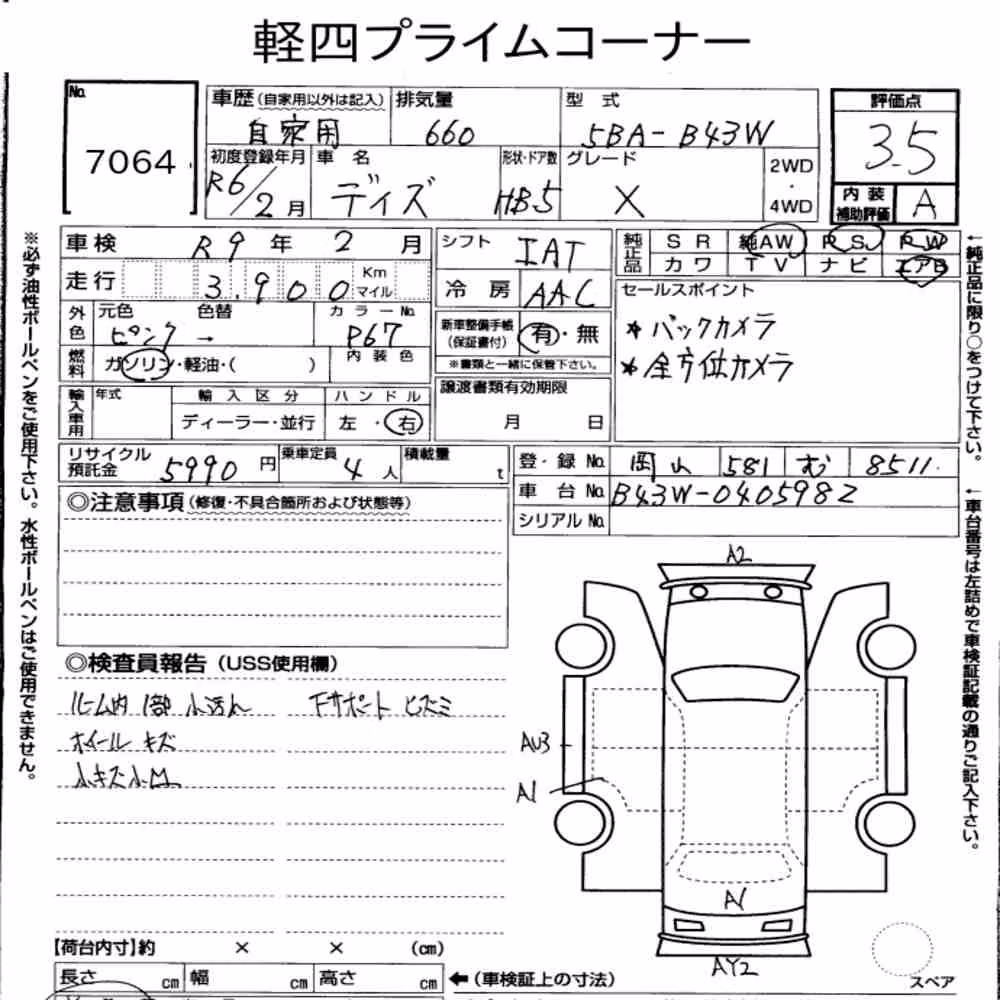 軽四プライムコーナー
No. 7064
車歴(自家用以外は記入) 自家用
排気量 660
型式 5BA-B43W
評価点 3.5
初度登録年月 R6/2月
車名 デイズ
形状・ドア数 HB.5
グレード X
2WD・4WD
内装補助評価 A
車検 R9年2月
シフト IAT
純正品 SR 純AW PS PW
カワ TV ナビ エアB
走行 3.900 Km マイル
冷房 AAC
セールスポイント
* バックカメラ
* 全方位カメラ
外色 元色 ピンク 色替 → カラーNo. P67
新車整備手帳(保証書付) 有・無
※書類と一緒に保管下さい。
燃料 ガソリン・軽油・( ) 内装色
譲渡書類有効期限 月 日
輸入車用 年式 輸入区分 ハンドル
ディーラー・並行 左・右
リサイクル預託金 5990円 乗車定員 4人 積載量 t
登・録No. 岡山 581 む 8511
車台No. B43W-0405982
シリアルNo.
◎注意事項(修復・不具合箇所および状態等)
◎検査員報告(USS使用欄)
ルーム内 1部 小汚れ 下サポート ヒズミ
ホイール キズ
小キズ小凹
A2
AU3
A1
A1
AY2
スペア
【荷台内寸】約 × × (cm)
長さ cm 幅 cm 高さ cm ←(車検証上の寸法)
※必ず油性ボールペンをご使用下さい。水性ボールペンはご使用できません。
←純正品に限り○をつけて下さい。
←車台番号は左詰めで車検証記載の通りご記入下さい。